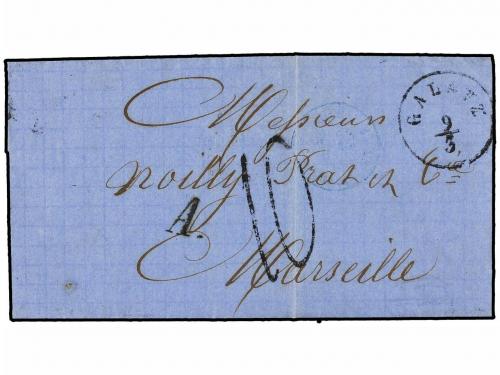 GALATZ
9/3
Messieurs
Noilly Prat et Cie
A.
10
Marseille